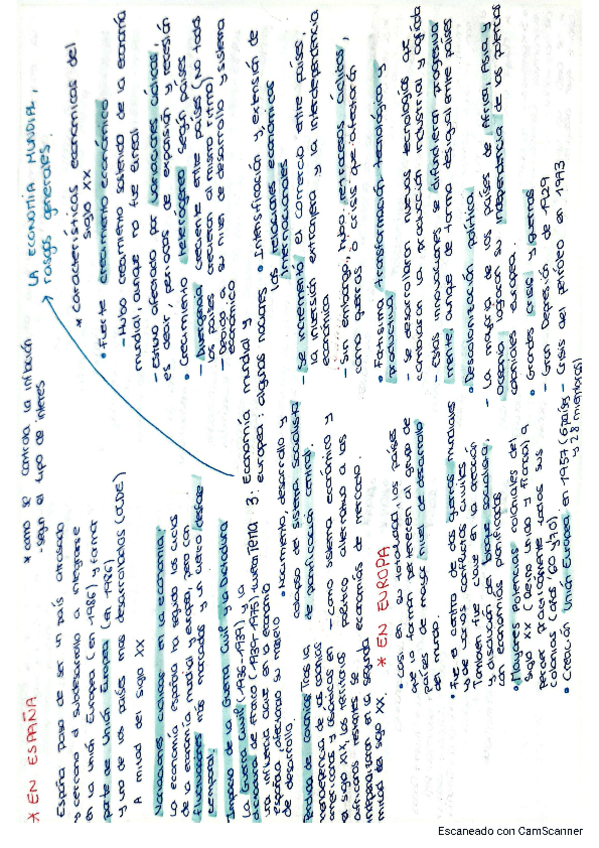 * EN ESPAÑA
España paso de ser un país atrasado
y cercano al subdesarrollo a integrarse
en la Unión Europea (en 1986) y formar
parte de Unión Europea (en 1986)
y uno de los países más desarrollados (OCDE)
A mitad del siglo XX
Variaciones cíclicas en la economía:
La economía española ha seguido los ciclos
de la economía mundial y europea, pero con
fluctuaciones más marcadas y un cierto desfase
temporal.
Impacto de la Guerra Civil y la Dictadura
La Guerra Civil (1936-1939) y la
dictadura de Franco (1939-1975) tuvieron
una influencia clave en la economía
española, afectando su modelo
de desarrollo.
Pérdida de colonias: Tras la
independencia de las colonias
americanas y asiáticas en
el siglo XIX, los territorios
africanos restantes se
independizaron en la segunda
mitad del siglo XX.
* como se controla la inflación
- según el tipo de interés
Tema 3: Economía mundial y
europea: algunas nociones
LA ECONOMÍA MUNDIAL,
rasgos generales.
* Características económicas del
siglo XX
• Fuerte crecimiento económico
- Hubo crecimiento sostenido de la economía
mundial, aunque no fue lineal
- Estuvo afectado por variaciones cíclicas,
es decir, periodos de expansión y recesión
• Crecimiento heterogéneo según países
- Divergencia creciente entre países (no todos
los países crecieron al mismo ritmo)
- según su nivel de desarrollo y sistema
económico
• Intensificación y extensión de
las relaciones económicas
internacionales
- Se incrementó el comercio entre países,
la inversión extranjera y la interdependencia
económica
- Sin embargo, hubo retrocesos cíclicos,
como guerras o crisis que afectarón
• Fortísima transformación tecnológica y
productiva
- Se desarrollaron nuevas tecnologías que
cambiaron la producción industrial y agrícola
- Estas innovaciones se difundieron progresiva
mente, aunque de forma desigual entre países
• Descolonización política
- La mayoría de los países de África, Asia y
Oceanía lograron su independencia de las potencias
coloniales europeas.
• Grandes crisis y guerras
- Gran Depresión de 1929
- Crisis del petróleo en 1973
• Nacimiento, desarrollo y
colapso del sistema socialista
de planificación central.
- como sistema económico y
político alternativo a las
economías de mercado.
* EN EUROPA
• casi en su totalidad, los países
que la forman pertenecen al grupo de
países de mayor nivel de desarrollo
del mundo.
• Fue el centro de dos guerras mundiales
y de varios conflictos civiles
También fue clave en la creación
y disolución del bloque socialista,
con economías planificadas
• Mayores Potencias coloniales del
siglo XX (Reino Unido y Francia) a
perder prácticamente todas sus
colonias (años '60 y 70)
• Creación Unión Europea en 1957 (6 países
y 28 miembros)
Escaneado con CamScanner